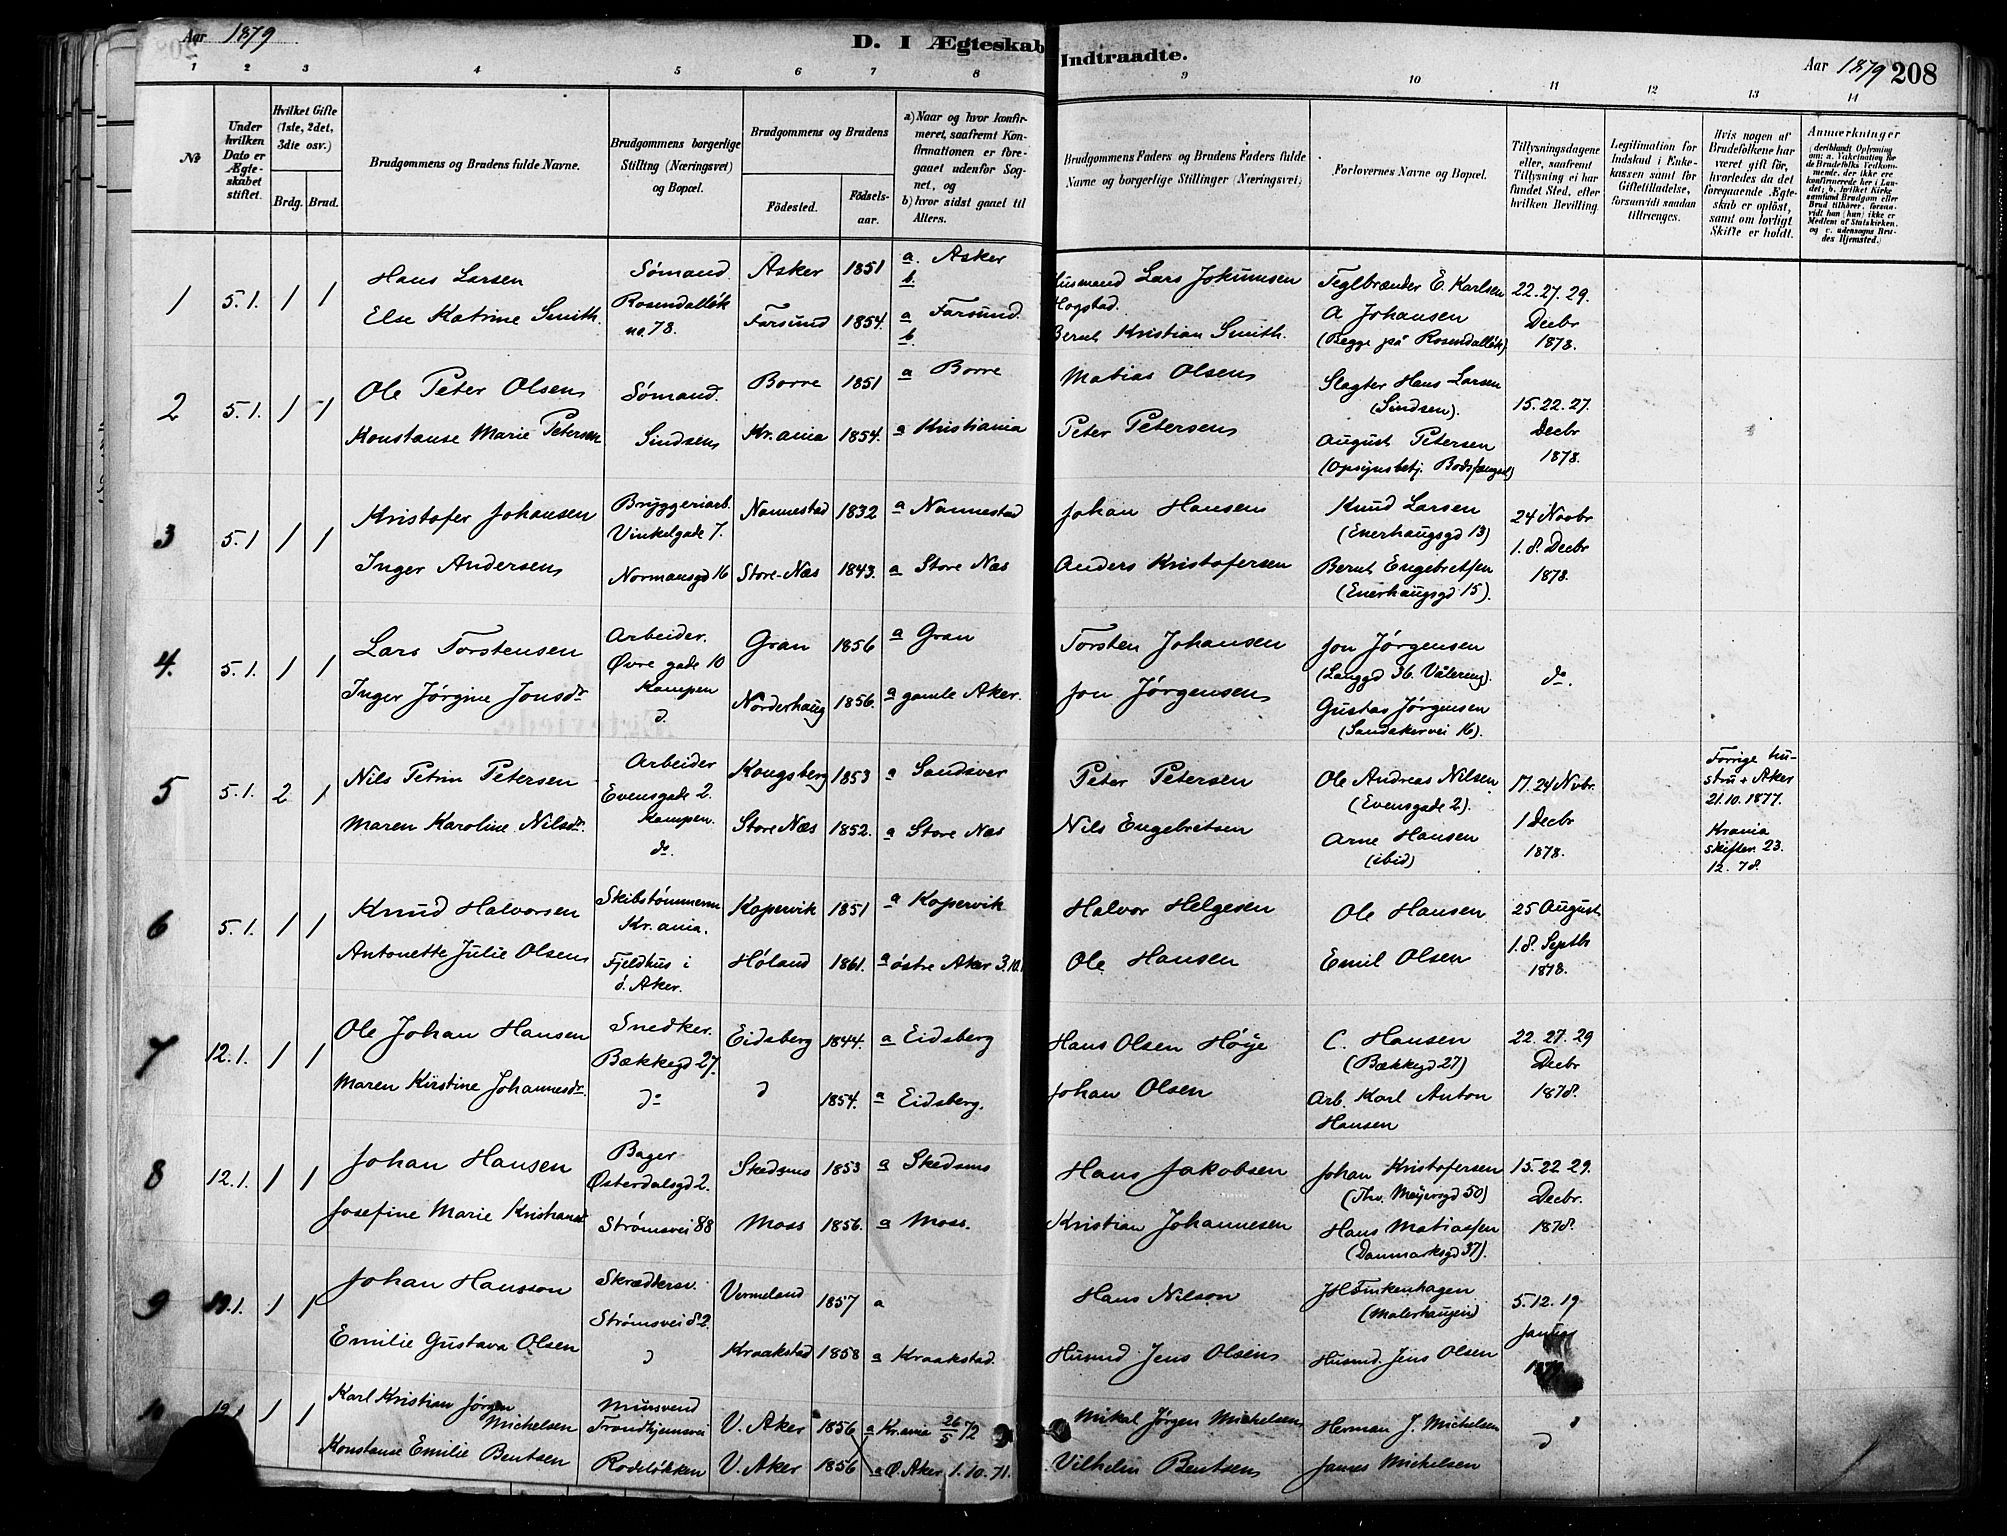 Aar 1879
D. I Ægteskab Indtraadte.
Aar 1879 208
1 2 3 4 5 6 7 8 9 10 11 12 13 14
№
Under hvilken Dato er Ægteskabet stiftet.
Hvilket Gifte (1ste, 2det, 3die osv.)
Brdg. Brud.
Brudgommens og Brudens fulde Navne.
Brudgommens borgerlige Stilling (Næringsvei) og Bopæl.
Brudgommens og Brudens
Fødested. Fødselsaar.
a) Naar og hvor konfirmeret, saafremt Konfirmationen er foregaaet udenfor Sognet, og
b) hvor sidst gaaet til Alters.
Brudgommens Faders og Brudens Faders fulde Navne og borgerlige Stillinger (Næringsvei)
Forlovernes Navne og Bopæl.
Tillysningsdagene eller, saafremt Tillysning ei har fundet Sted, efter hvilken Bevilling.
Legitimation for Indskud i Enkekassen samt for Giftetilladelse, forsaavidt saadan tiltrænges.
Hvis nogen af Brudefolkene har været gift før, hvorledes da det foregaaende Ægteskab er opløst, samt om lovligt Skifte er holdt.
Anmærkninger (deriblandt Oplysning om: a. Vaksination for de Brudefolks Vedkommende, der ikke ere konfirmerede her i Landet; b. hvilket Kirkesamfund Brudgom eller Brud tilhører, forsaavidt han (hun) ikke er Medlem af Statskirken, og c. udensogns Brudes Hjemsted.)
1 5.1. 1 1 Hans Larsen Sømand. Asker 1851 a. Asker Husmand Lars Jokumsen Teglbrænder E. Karlsen 22.27.29.
b. Hogstad. A Johansen Decbr
Else Katrine Smith. Rosendalløk no 78. Farsund 1854. a Farsund. Bernt Kristian Smith. (Begge på Rosendalløk) 1878.
b.
2 5.1. 1 1 Ole Peter Olsen Sømand. Borre 1851 a Borre Matias Olsen Slagter Hans Larsen (Sindsen). 15.22.27.
Konstanse Marie Petersen Sindsen Kr.ania 1854. a Kristiania Peter Petersen August Petersen Decbr
(Opsynsbetj. Bodsfængsel) 1878.
3 5.1 1 1 Kristofer Johansen Bryggeriarb. Vinkelgade 7. Nannestad 1832 a Nannestad Johan Hansen Knud Larsen (Enerhaugsgd 13) 24 Novbr
Inger Andersen Normansgd 16 Store-Næs 1843. a Store Næs Anders Kristofersen Bernt Engebretsen (Enerhaugsgd 15). 1.8. Decbr 1878.
4. 5.1. 1 1 Lars Torstensen Arbeider. Øvre gade 10 Kampen Gran 1856 a Gran Torsten Johansen Jon Jørgensen (Langgd 36. Vålereng). do.
Inger Jørgine Jonsdr. d. Norderhaug 1856. a gamle Aker. Jon Jørgensen Gustav Jørgensen (Sandakervei 16).
5 5.1. 2 1 Nils Petrin Petersen Arbeider Evensgade 2. Kampen. Kongsberg 1853 a Sandsver Peter Petersen Ole Andreas Nilsen (Evensgade 2). 17.24 Nvbr. Forrige hustru + Aker 21.10.1877.
Maren Karoline Nilsdr. do. Store Næs 1852. a Store Næs Nils Engebretsen Arne Hansen (ibid) 1 Decbr 1878. Krania skifter. 23. 12. 78.
6 5.1. 1 1 Knud Halvorsen Skibstømmerm Kr.ania. Kopervik 1851 a Kopervik Halvor Helgesen Ole Hansen 25 August
Antonette Julie Olsen Fjeldhus i ö. Aker. Høland 1861. a østre Aker 3.10. Ole Hansen Emil Olsen 1.8. Septb 1878.
7 12.1. 1 1 Ole Johan Hansen Snedker. Bækkegd 27. Eidsberg 1844. a Eidsberg Hans Olsen Høye C. Hansen (Bækkegd 27) 22.27.29
Maren Kirstine Johannesdr. do d 1854. a Eidsberg. Johan Olsen Arb. Karl Anton Hansen Decbr 1878.
8 12.1. 1 1 Johan Hansen Bager Østerdalsgd 2. Skedsmo 1853 a Skedsmo Hans Jakobsen Johan Kristofersen (Thv. Meyersgd 50) 15.22.29.
Josefine Marie Kristiansdr Strømsvei 88 Moss 1856. a Moss. Kristian Johannesen Hans Matiassen (Danmarksgd 37). Decbr. 1878.
9 19.1. 1 1 Johan Hansson Skrædersv. Strømsvei 82. Vermeland 1857 a Hans Nilson (Malerhaugen) 5.12.19
Emilie Gustava Olsen d Kraakstad 1858 a Kraakstad. Husmd Jens Olsen Husmd. Jens Olsen 1879.
19.1 1 1 Karl Kristian Jørgen Michelsen Mursvend Trondhjemsvei V. Aker 1856 a Kr.ania 26/5 72 Mikal Jørgen Michelsen Herman J. Michelsen d
Konstanse Emilie Bentsen Rodeløkken V. Aker 1856 a Ø. Aker 1.10.71. Vilhelm Bentsen James Michelsen